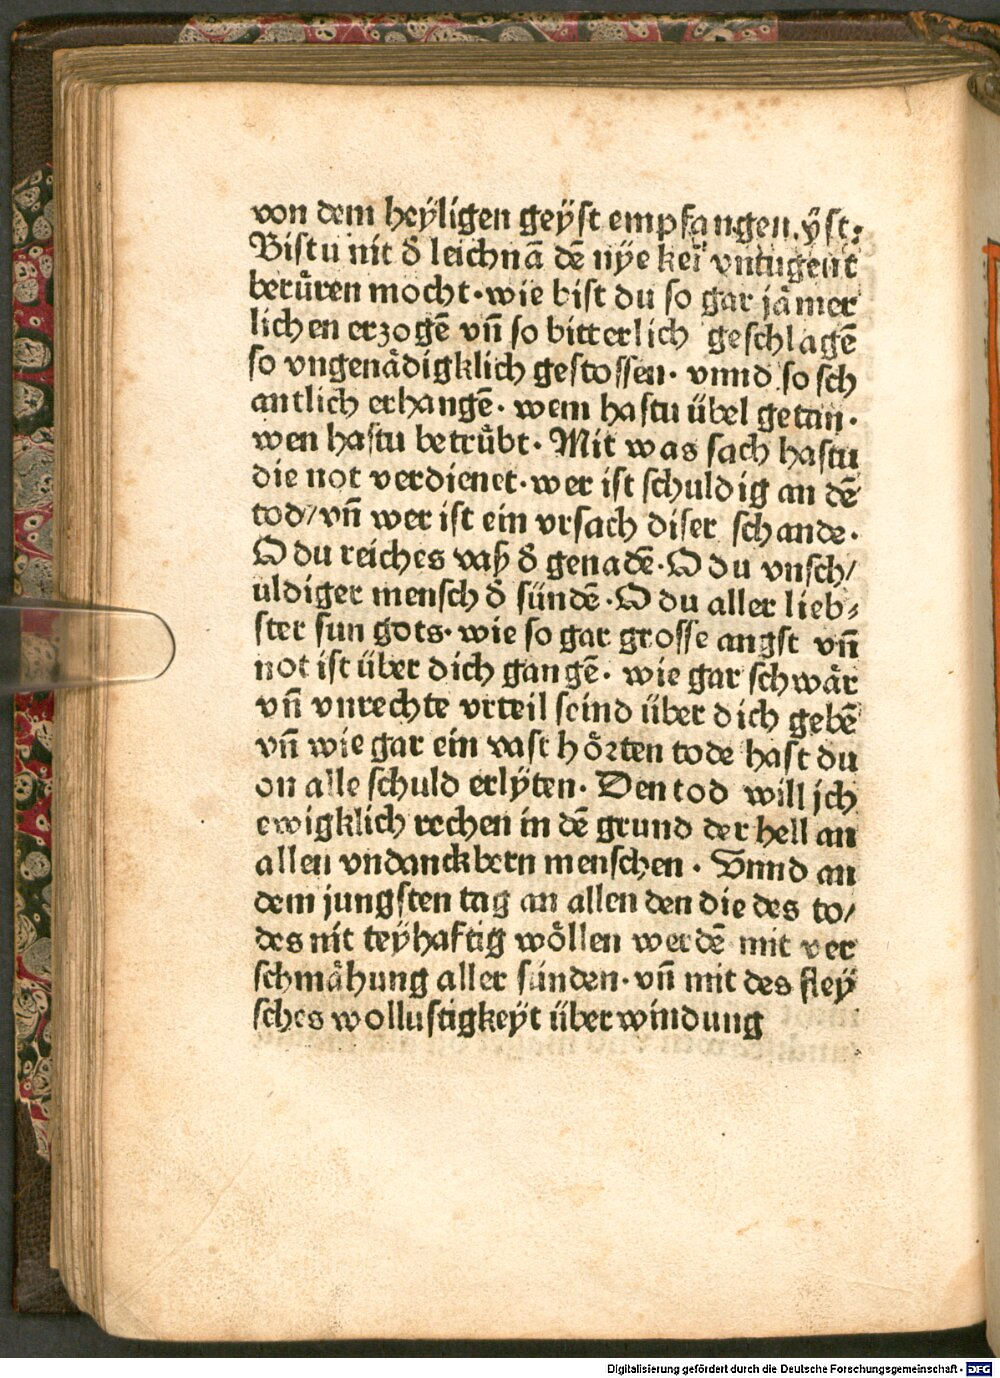 von dem heÿligen geÿst empfangen. ÿst:
Bistu nit d̓ leichnā dē nÿe kei̅ vntugent
berůren mocht·wie bist du so gar jåmer
lichen erzogē vn̄ so bitterlich geschlagē
so vngenådigklich gestossen· vnnd so sch
antlich erhangē· wem hastu übel getan·
wen hastu betrůbt· Mit was sach hastu
die not verdienet·wer ist schuldig an dē
tod/vn̄ wer ist ein vrsach diser schande·
O du reiches vaß d̓ genadē·O du vnsch/
uldiger mensch d̓ sündē·O du aller lieb⸗
ster sun gots· wie so gar grosse angst vn̄
not ist über dich gangē· wie gar schwår
vn̄ vnrechte vrteil seind über dich gebē
vn̄ wie gar ein vast hörten tode hast du
on alle schuld erlÿten· Den tod will jch
ewigklich rechen in dē grund der hell an
allen vndanckbern menschen· Vnnd an
dem jungsten tag an allen den die des to/
des nit teÿhaftig wöllen werdē mit ver
schmåhung aller sünden·vn̄ mit des fleÿ
sches wollustigkeÿt überwindung
Digitalisierung gefördert durch die Deutsche Forschungsgemeinschaft - DFG